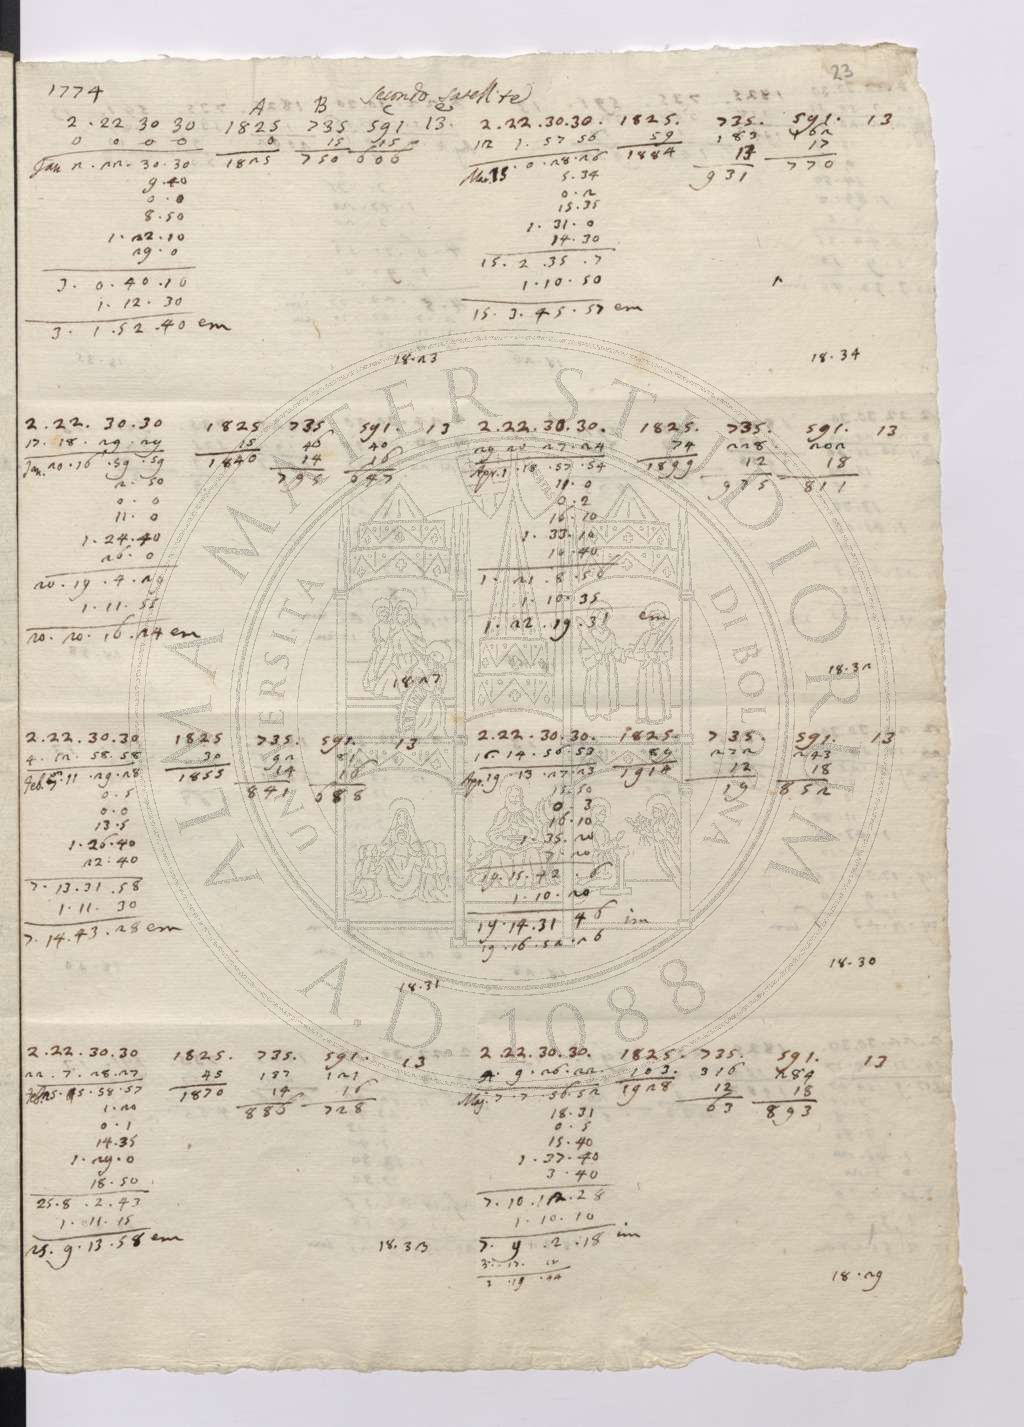 23
1774
Secondo Satellite
A B C
2 . 22 30 30 1825 735 591 13
0 0 0 0 0 15 15
Jan 2 . 22 . 30 . 30 1825 750 606
9 . 40
0 . 0
8 . 50
1 . 22 . 10
29 . 0
3 . 0 . 40 . 10
1 . 12 . 30
3 . 1 . 52 . 40 em
18 . 23
2 . 22 . 30 . 30 1825 735 591 . 13
17 . 18 . 29 . 29 15 46 40
Jan. 20 . 16 . 59 . 59 1840 14 16
2 . 50 795 647
0 . 0
11 . 0
1 . 24 . 40
26 . 0
20 . 19 . 4 . 29
1 . 11 . 55
20 . 20 . 16 . 24 em
18 . 27
2 . 22 . 30 . 30 1825 735 . 591 . 13
4 . 12 . 58 . 58 30 92 81
1855 14 16
0 . 5 841 688
0 . 0
13 . 5
1 . 26 . 40
22 . 40
7 . 13 . 31 . 58
1 . 11 . 30
7 . 14 . 43 . 28 em
18 . 31
2 . 22 . 30 . 30 1825 . 735 . 591 . 13
22 . 7 . 28 . 27 45 137 121
1870 14 16
1 . 20 886 728
0 . 1
14 . 35
1 . 29 . 0
18 . 50
25 . 8 . 2 . 43
1 . 11 . 15
25 . 9 . 13 . 58 em
18 . 33
2 . 22 . 30 . 30 . 1825 . 735 . 591 . 13
12 1 . 57 56 59 183 162
1884 13 17
5 . 34 931 770
0 . 2
15 . 35
1 . 31 . 0
14 . 30
15 . 2 . 35 . 7
1 . 10 . 50
15 . 3 . 45 . 57 em
18 . 34
2 . 22 . 30 . 30 . 1825 . 735 . 591 . 13
29 20 . 27 . 24 74 228 202
Apr. 1 . 18 . 57 . 54 1899 12 18
11 . 0 975 811
0 . 2
16 . 10
1 . 33 . 10
10 . 40
1 . 21 . 8 . 56
1 . 10 . 35
1 . 22 . 19 . 31 em
18 . 32
2 . 22 . 30 . 30 . 1825 . 735 . 591 . 13
16 . 14 . 56 . 53 89 272 243
Apr. 19 . 13 . 27 . 23 1914 12 18
15 . 50 19 852
0 3
16 . 10
1 . 35 . 20
7 . 20
19 . 15 . 42 . 6
1 . 10 . 20
19 . 14 . 31 46 im
19 . 16 . 52 . 26
18 . 30
2 . 22 . 30 . 30 . 1825 . 735 . 591 . 13
4 . 9 . 26 . 22 103 . 316 284
Maj. 7 . 7 . 56 . 52 1928 12 18
18 . 31 63 893
0 . 5
15 . 40
1 . 37 . 40
3 . 40
7 . 10 . 12 . 28
1 . 10 . 10
7 . 9 . 2 . 18 im
18 . 29
ALMA MATER STUDIORUM
UNIVERSITA DI BOLOGNA
A.D. 1088